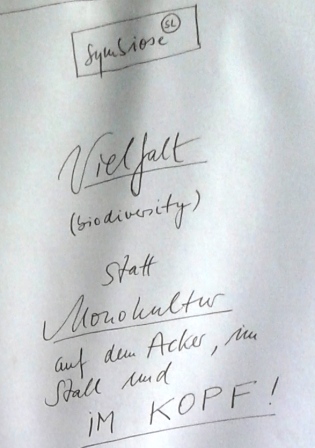 Symbiose SL
Vielfalt
(biodiversity)
statt
Monokultur
auf dem Acker, im
Stall und
IM KOPF!